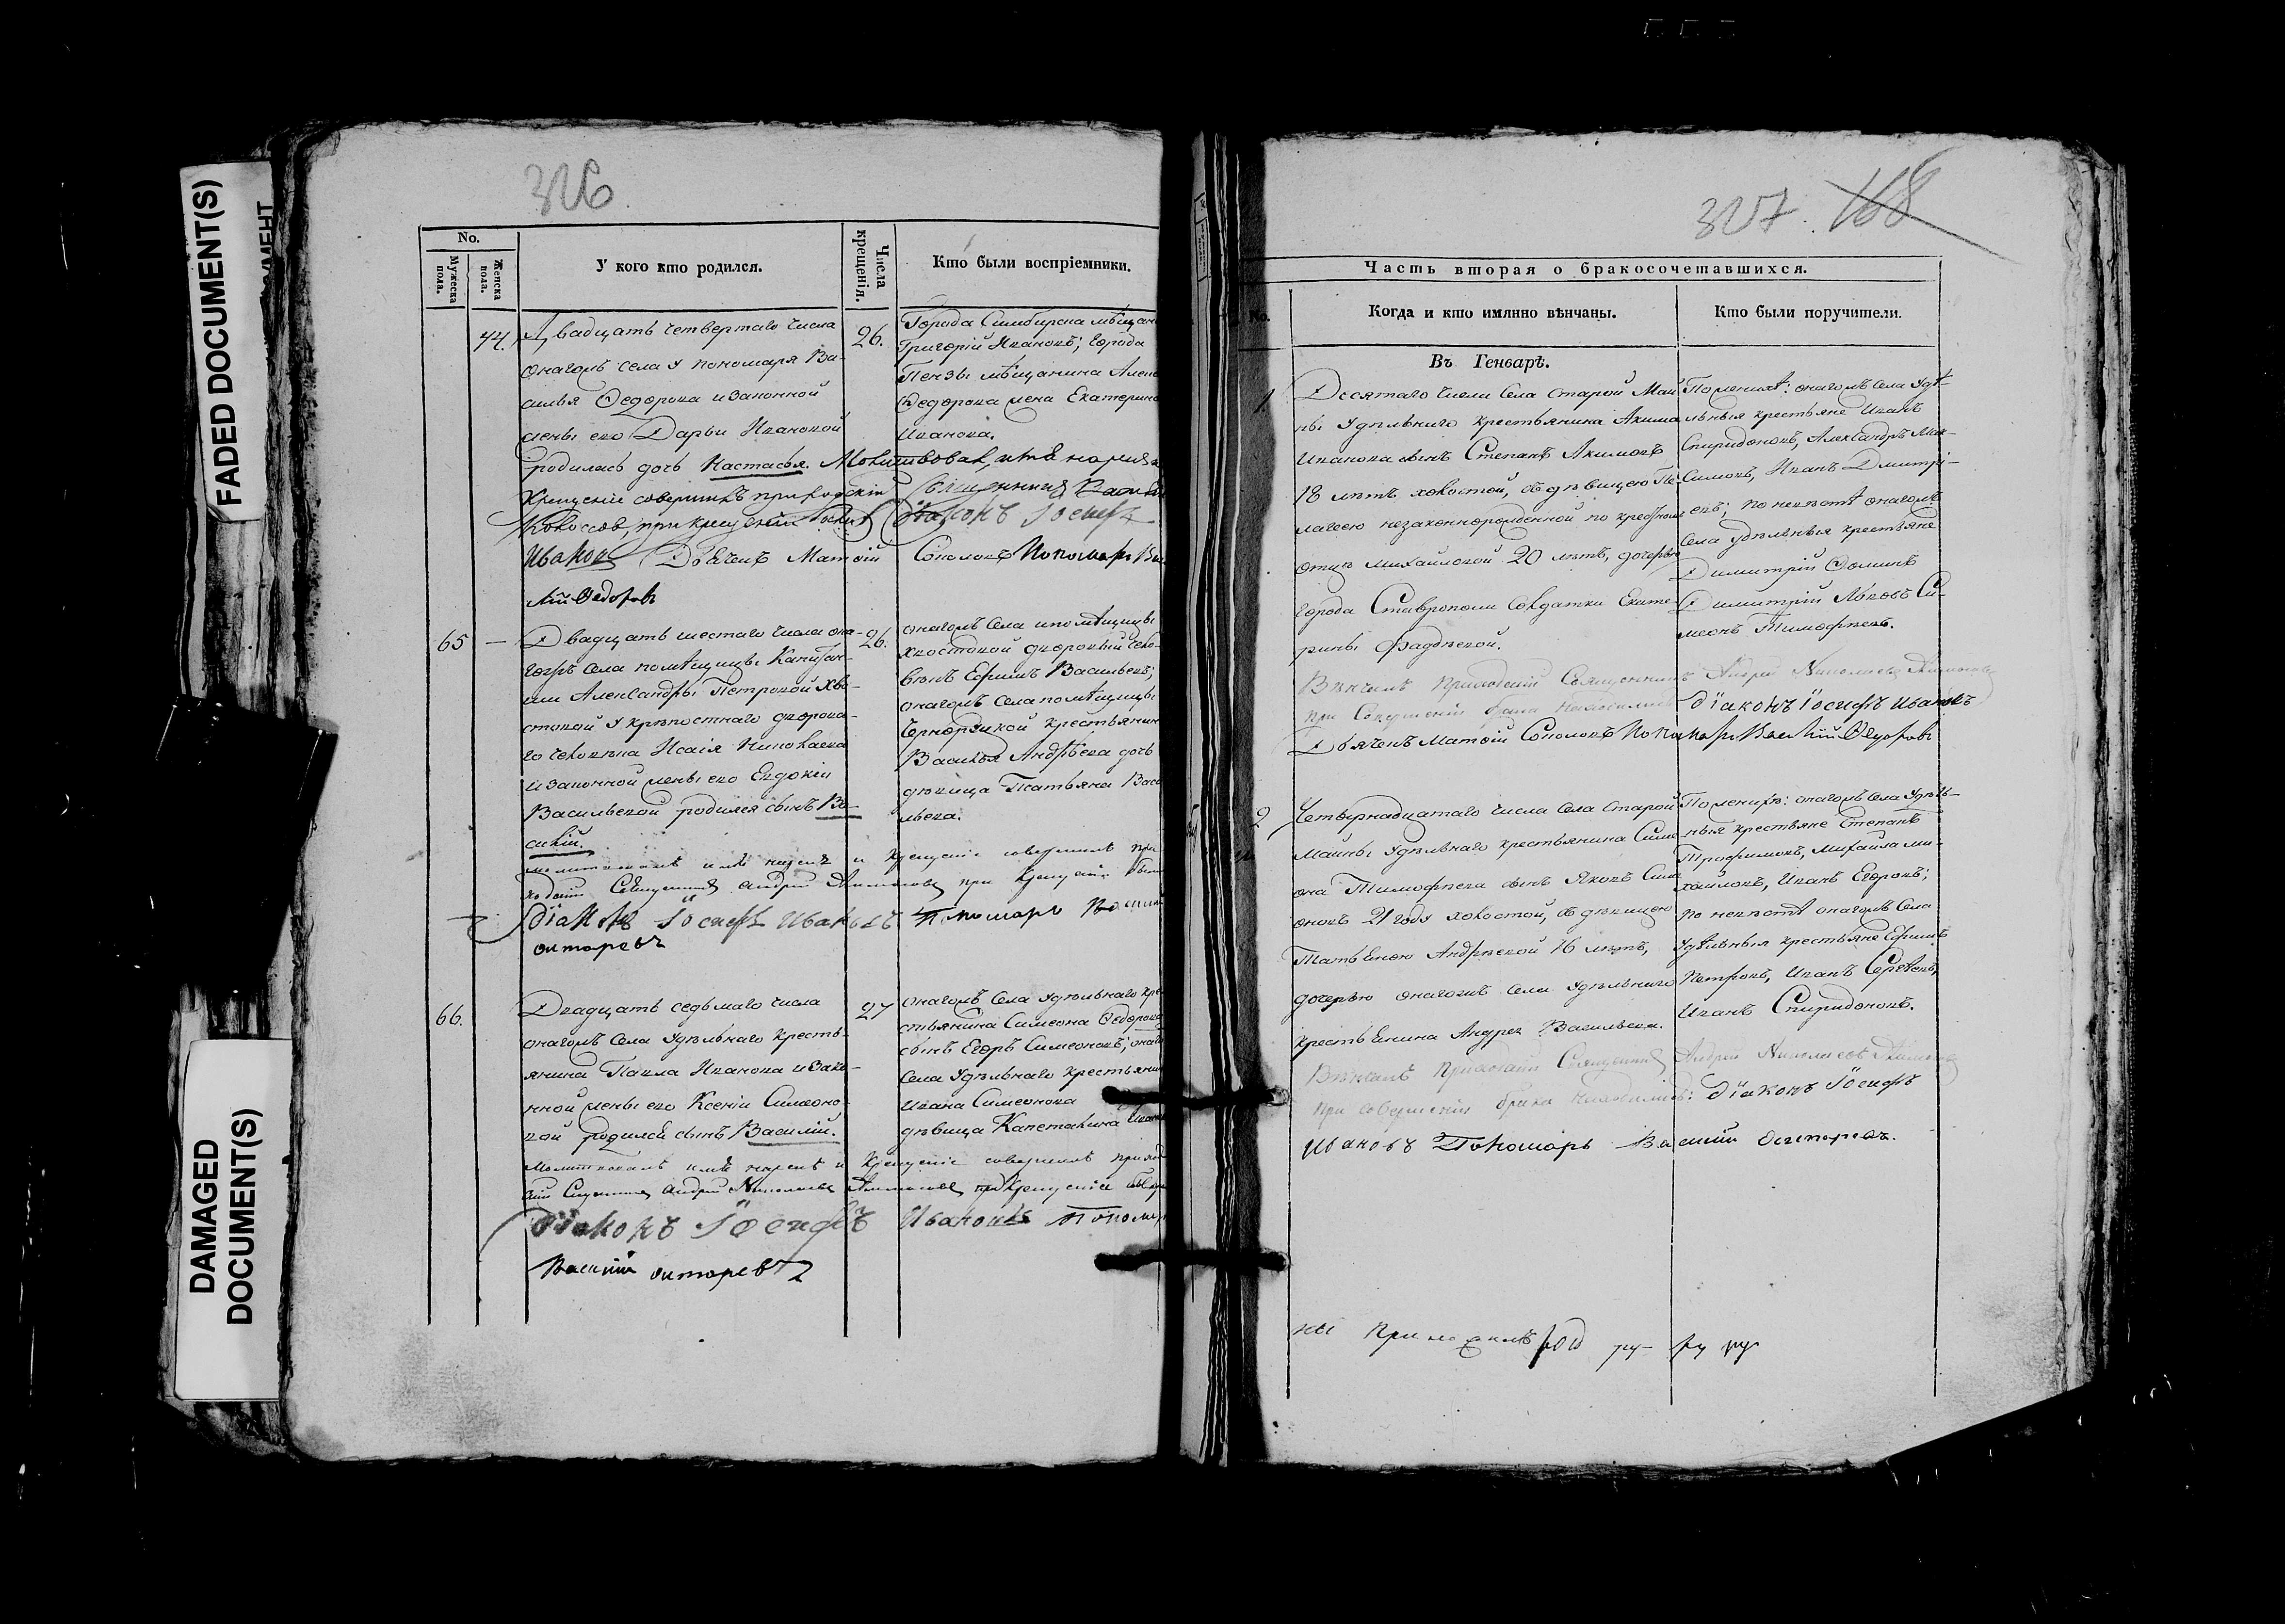 FADED DOCUMENT(S)
DAMAGED
DOCUMENT(S)
326
No.
Мужеска пола.
Женска пола.
У кого кто родился.
Числа крещенія.
Кто были воспріемники.
44.
Двадцать четвертаго числа
онагожъ села у пономаря Ва-
силья Ѳедорова и законной
жены его Дарьи Ивановой
родилась дочь Настасья. Молитвовал, имя нарек
Крещеніе совершилъ приходскій
при крещеніи
Иванов Дьячекъ Матѳій Соколовъ Пономарь Ва-
лій Ѳедоровъ
26.
Города Симбирска мѣщан
Григорій Ивановъ; города
Пензы мѣщанина Алекс
Ѳедорова жена Екатерина
Иванова.
Священникъ
Діаконъ Іосифъ
65 —
Двадцать шестаго числа она-
гожъ села помѣщицы Капитан-
ши Александры Петровой Хво-
стовой у крѣпостнаго дворова-
го человѣка Исаія Николаева
и законной жены его Евдокіи
Васильевой родился сынъ Ва-
силій.
молитвовалъ имя нарекъ и крещеніе совершилъ при-
ходскій Священникъ Андрей при крещеніи были
Діаконъ Іосифъ Ивановъ Пономарь
октаревъ
26.
онагожъ села помѣщицы
Хвостовой дворовый чело-
вѣкъ Ефимъ Васильевъ;
онагожъ села помѣщицы
крестьянин
Василья Андрѣева дочь
дѣвица Татьяна Васи
льева.
66.
Двадцать седьмаго числа
онагожъ села удѣльнаго кресть-
янина Павла Иванова и зако-
нной жены его Ксеніи Симеоно-
вой родился сынъ Василій.
Молитвовалъ имя нарекъ и крещеніе совершилъ приход
скій Священникъ Андрей Николаевъ при крещеніи были
Діаконъ Іосифъ Ивановъ Пономарь
Василій октаревъ
27
онагожъ села удѣльнаго кре
стьянина Симеона Ѳедорова
сынъ Егоръ Симеоновъ; онаго
села удѣльнаго крестьянин
Ивана Симеонова
дѣвица Капеталина Иван
327. 168
Часть вторая о бракосочетавшихся.
No.
Когда и кто имянно вѣнчаны.
Кто были поручители.
Въ Генварѣ.
1.
Десятаго числа села Старой Май
ны удѣльнаго крестьянина Акима
Иванова сынъ Степанъ Акимовъ
18 лѣтъ холостой, съ дѣвицею Пе
лагеею незаконнорожденной по крестному
отцу Михайловой 20 лѣтъ, дочерью
города Ставрополи солдатки Екате-
рины Фадѣевой.
Вѣнчалъ приходскій Священникъ Андрей Николаевъ
при совершеніи брака находились Діаконъ Іосифъ Ивановъ
Дьячекъ Матѳій Соколовъ Пономарь Василій Ѳедоровъ
По женихѣ: онагожъ села удѣ-
льныя крестьяне Иванъ
Спиридоновъ, Александръ Мак-
симовъ, Иванъ Дмитрі-
евъ; по невѣстѣ онагожъ
села удѣльныя крестьяне
Димитрій Ѳоминъ
Димитрій Львовъ Си-
меонъ Тимофѣевъ.
2
Четырнадцатаго числа села Старой
Майны удѣльнаго крестьянина Симе
она Тимофѣева сынъ Яковъ Симе
оновъ 21 году холостой, съ дѣвицею
Татьяною Андрѣевой 16 лѣтъ,
дочерью онагожъ села удѣльнаго
крестьянина Андрея Васильева.
Вѣнчалъ приходскій Священникъ Андрей Николаевъ
при совершеніи брака находились: Діаконъ Іосифъ
Ивановъ Пономарь Василій октаревъ.
По женихѣ: онагожъ села удѣль-
ныя крестьяне Степанъ
Трофимовъ, Михайла Ми-
хайловъ, Иванъ Егоровъ;
по невѣстѣ онагожъ села
удѣльныя крестьяне Ефимъ
Петровъ, Иванъ Сергѣевъ,
Иванъ Спиридоновъ.
ны